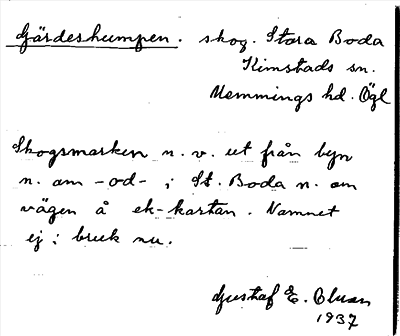 Gärdeshumpen. skog. Stora Boda
Kimstads sn.
Memmings hd. Ögl
Skogsmarken n. v. ut från byn
n. om -od- i St. Boda n. om
vägen å ek-kartan. Namnet
ej i bruk nu.
Gustaf E. Olsson
1937